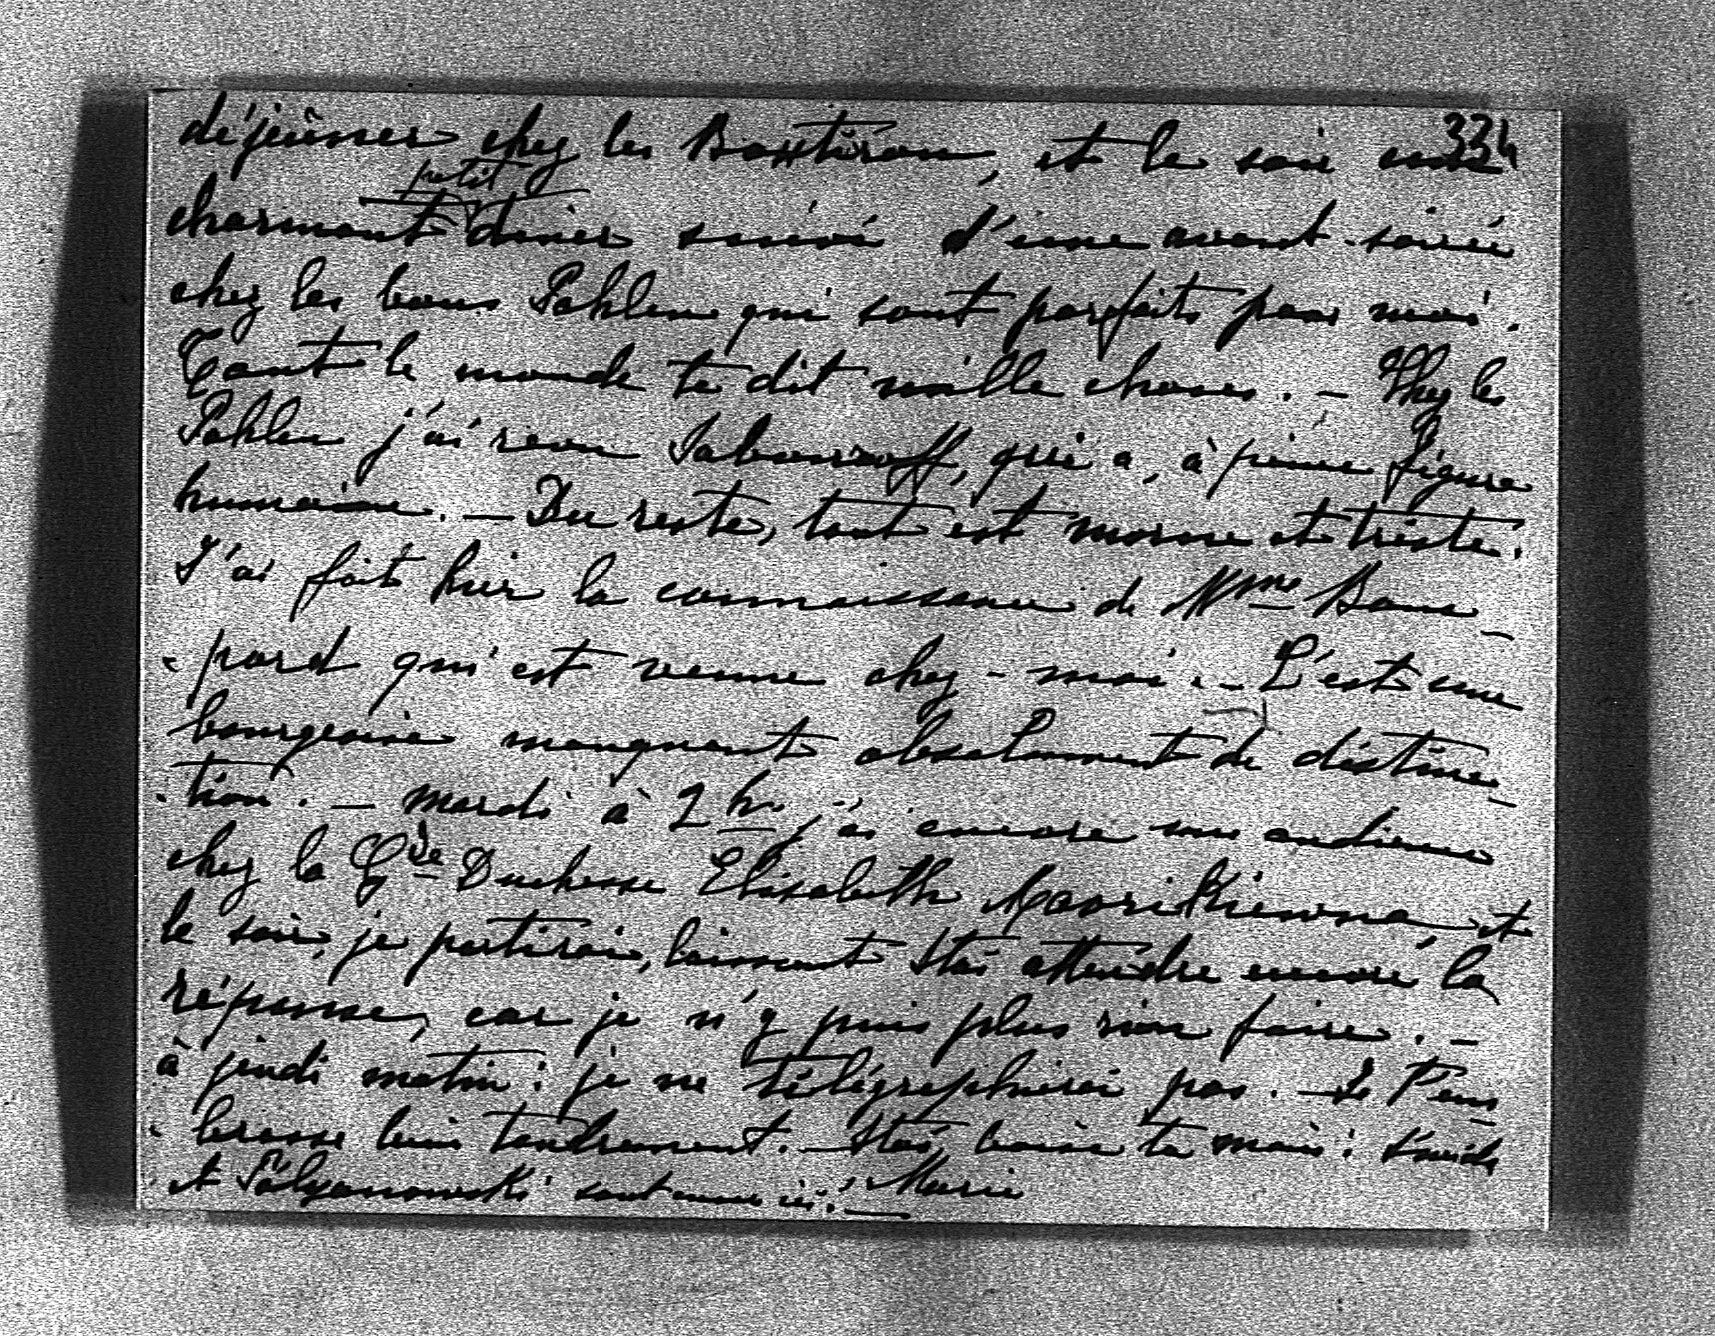 334
déjeûner chez les et le soir un
petit
charmant diner suivi d'une avant-soirée
chez les bons Pahlen qui sont parfaits pour moi.
Tout le monde te dit mille choses. – Chez les
Pahlen j'ai revu Sabouroff, qui a, à peine figure
humaine. – Du reste, tout est morne et triste.
J'ai fait hier la connaissance de Mme Bom-
-pard qui est venue chez-moi. – C'est une
bourgeoise manquant absolument de distinc-
-tion. – Mardi à 2 h. j'ai encore une audience
chez la Gde Duchesse Elisabeth Mavrikiewna, et
le soir, je partirai, laissant Stas attendre encore la
réponse, car je n'y puis plus rien faire. –
à jeudi matin: je ne télégraphierai pas. – Je t'em-
-brasse bien tendrement. – Stas baise ta main:
et sont encore ici! – Marie